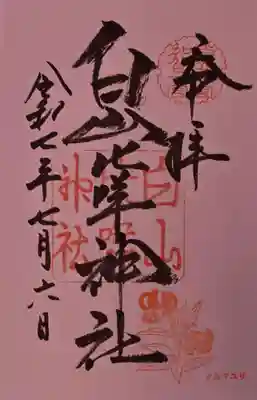 奉拝
白山比咩神社
令和七年七月六日
白山
比咩
神社